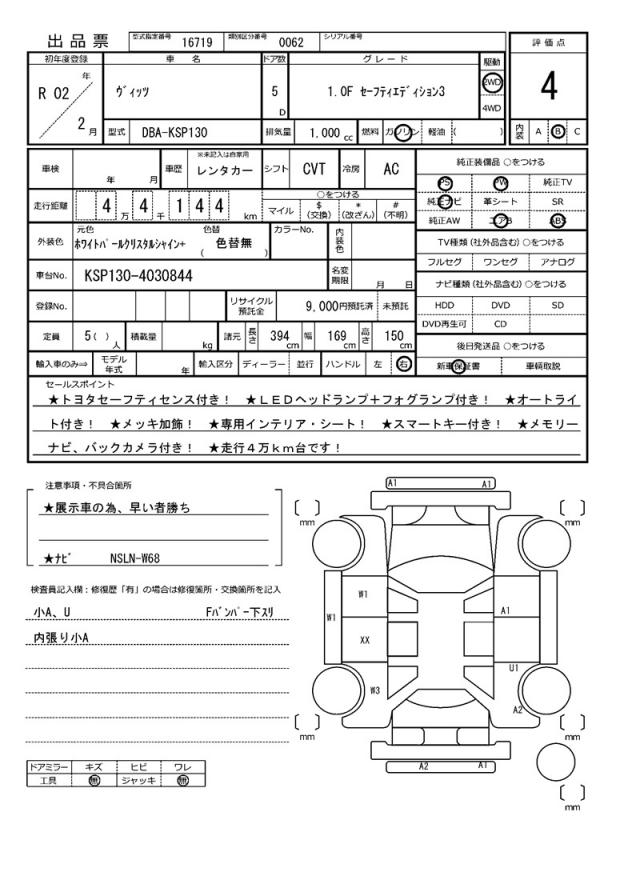 出品票 型式指定番号 16719 類別区分番号 0062 シリアル番号
評価点
4
内装 A B C
初年度登録 車名 ドア数 グレード 駆動
R 02 年 2 月
ヴィッツ 5 D 1.0F セーフティエディション3 2WD 4WD
型式 DBA-KSP130 排気量 1,000 cc 燃料 ガソリン 軽油 ( )
車検 年 月 車歴 ※未記入は自家用 レンタカー シフト CVT 冷房 AC
走行距離 4 万 4 千 1 4 4 km
○をつける
マイル $(交換) *(改ざん) #(不明)
外装色 元色 ホワイトパールクリスタルシャイン+ 色替 色替無 ( ) カラーNo. 内装色
車台No. KSP130-4030844 名変期限 月 日
登録No. リサイクル預託金 9,000円預託済 未預託
定員 5( ) 人 積載量 kg 諸元 長さ 394 cm 幅 169 cm 高さ 150 cm
輸入車のみ⇒ モデル年式 年 輸入区分 ディーラー 並行 ハンドル 左 右
純正装備品 ○をつける
PS PW 純正TV
純正ナビ 革シート SR
純正AW エアB ABS
TV種類(社外品含む)○をつける
フルセグ ワンセグ アナログ
ナビ種類(社外品含む)○をつける
HDD DVD SD
DVD再生可 CD
後日発送品 ○をつける
新車保証書 車輌取説
セールスポイント
★トヨタセーフティセンス付き! ★LEDヘッドランプ+フォグランプ付き! ★オートライ
ト付き! ★メッキ加飾! ★専用インテリア・シート! ★スマートキー付き! ★メモリー
ナビ、バックカメラ付き! ★走行4万km台です!
注意事項・不具合箇所
★展示車の為、早い者勝ち
★ナビ NSLN-W68
検査員記入欄:修復歴「有」の場合は修復箇所・交換箇所を記入
小A、U Fバンパー下スリ
内張り小A
ドアミラー キズ ヒビ ワレ
工具 無 ジャッキ 無
A1 A1
[ ] mm [ ] mm
W1
W1 A1
XX
U1
W3
A2
[ ] mm [ ] mm
A2 A1
[ ] mm